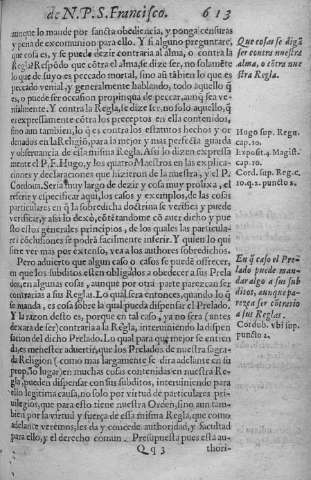 de N. P. S. Francisco. 613
aunque lo mande por sancta obediencia, y ponga censuras
y pena de excomunion para ello. Y si alguno preguntare,
que cosa es, y se puede dezir contraria al alma, o contra la
Regla? Respōdo que cōtra el alma, se dize ser, no solamēte
lo que de suyo es peccado mortal, sino aū tābien lo que es
peccado venial, y generalmente hablando, todo aquello q̄
es, o puede ser ocasion propinqua de peccar, aunq̄ sea ve-
nialmente. Y contra la Regla, se dize ser, no solo aquello, q̄
es expressamente cōtra los preceptos en ella contenidos,
sino aun tambien, lo q̄ es contra los estatutos hechos y or
denados en la Religiō, para la mejor y mas perfecta guarda
y observancia de essa misma Regla. Assi lo dizen expressa
mente el P. F. Hugo, y los quatro Maestros en las explica-
ciones y declaraciones que hizieron de la nuestra, y el P.
Cordoua. Seria muy largo de dezir y cosa muy prolixa, el
referir y especificar aqui, los casos y exemplos, de las cosas
particulares, en q̄ la sobredicha doctrina se verifica y puede
verificar, y assi lo dexò, cōtētandome cō auer dicho y pue
sto estos generales principios, de los quales las particula-
res cōclusiones se podrà facilmente inferir. Y quien lo qui
siere ver mas por extenso, vea a los authores sobredichos.
Pero aduierto que algun caso o casos se puede offrecer,
en que los subditos estē obligados a obedecer a sus Prela
dos, en algunas cosas, aunque por otra parte parezcan ser
contrarias a sus Reglas. Lo qual sera entonces, quando lo q̄
se manda, es cosa sobre la qual puede dispensar el Prelado.
Y la razon desto es, porque en tal caso, ya no sera (antes
dexara de ser) contraria a la Regla, interuiniendo la dispen
sacion del dicho Prelado. Lo qual para que mejor se entien
da, es menester aduertir, que los Prelados de nuestra sagra-
da Religion (como mas largamente se dira adelante en su
proprio lugar) en muchas cosas contenidas en nuestra Re-
gla, pueden dispensar con sus subditos, interuiniendo para
ello legitima causa, no solo por virtud de particulares pri-
uilegios, que para esto tiene nuestra Orden, sino aun tam-
bien por la virtud y fuerça de essa misma Regla, que como
adelante veremos, les da y concede authoridad, y facultad
para ello, y el derecho comun. Presupuesta pues esta au-
Qq 3 thori-
Que cosas se digā
ser contra nuestra
alma, o cōtra nue
stra Regla.
Hugo sup. Regu.
cap. 10.
Exposit. 4. Magist.
cap. 10.
Cord. sup. Reg. c.
10. q. 2. puncto 2.
En q̄ caso el Pre-
lado puede man-
dar algo a sus sub
ditos, aunque pa-
rezca ser cōtrario
a sus Reglas.
Cordub. vbi sup.
puncto 2.